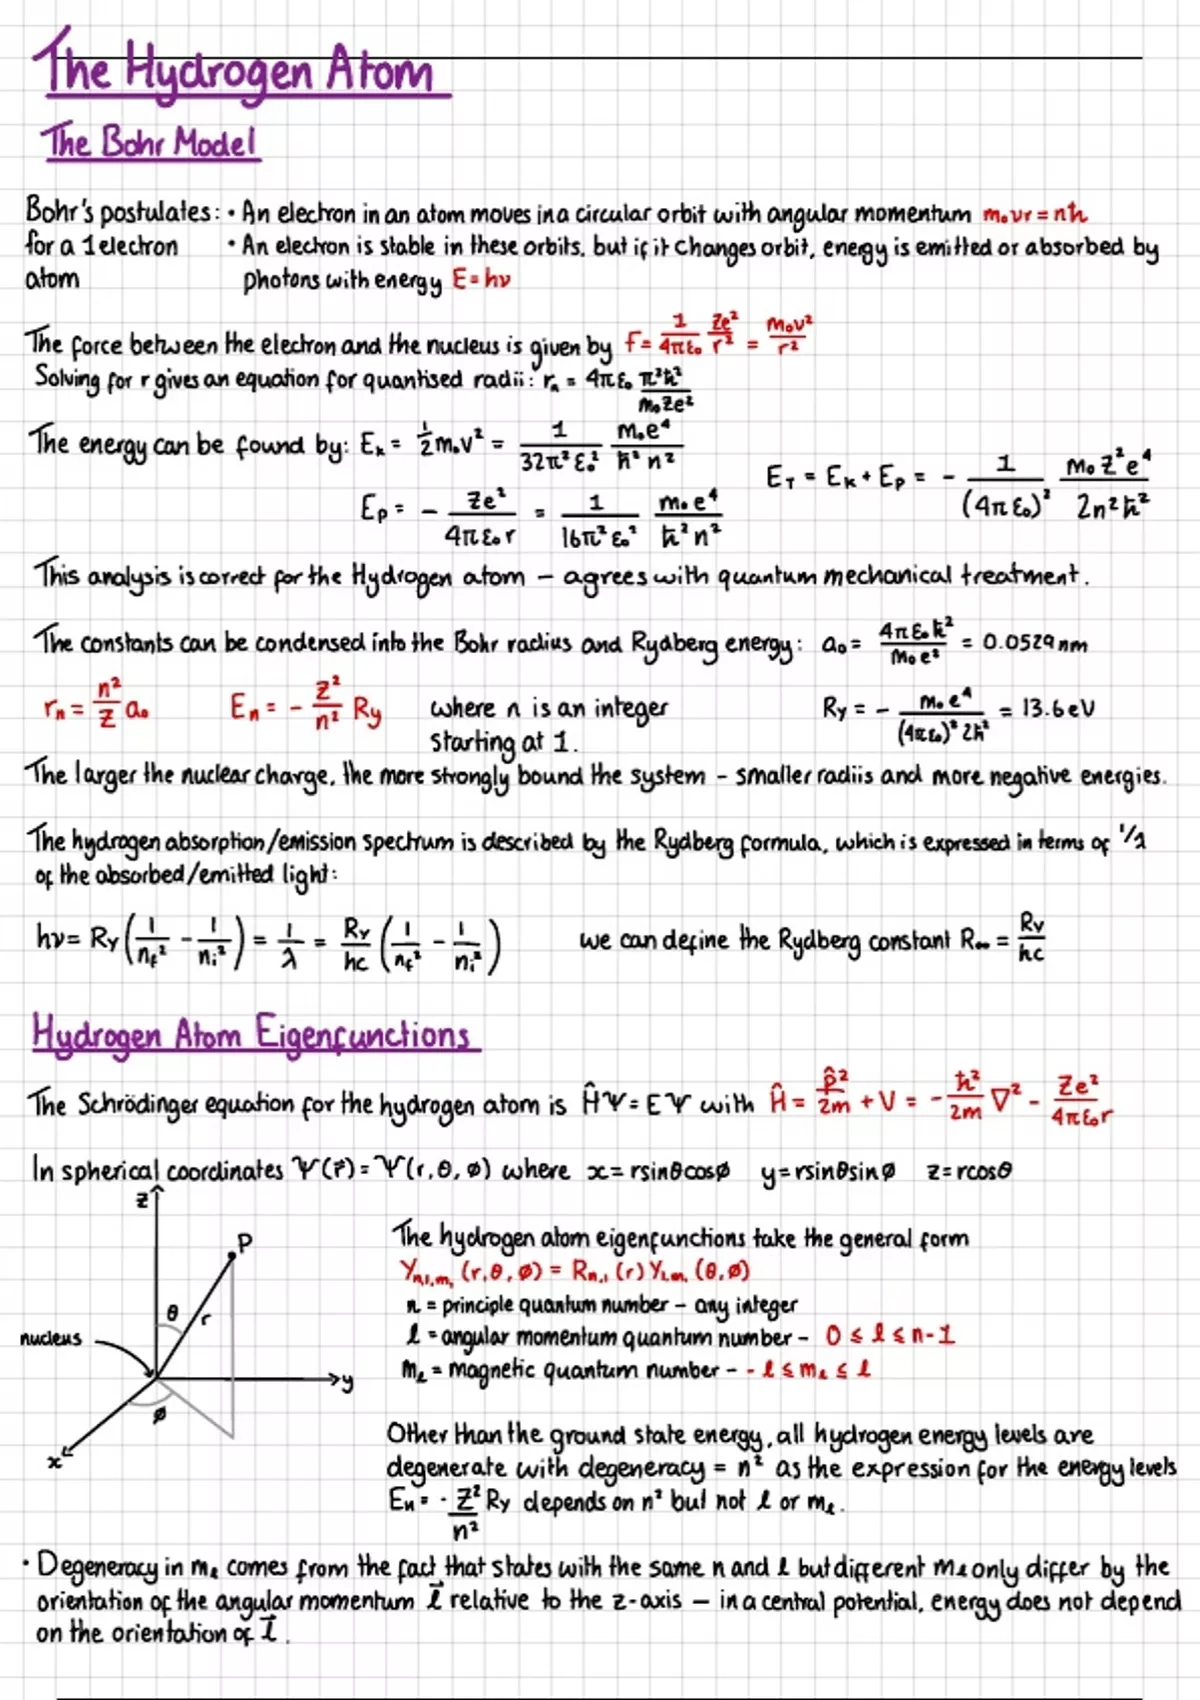 The Hydrogen Atom
The Bohr Model
Bohr's postulates: • An electron in an atom moves in a circular orbit with angular momentum m₀vr = nħ
for a 1 electron • An electron is stable in these orbits, but if it changes orbit, energy is emitted or absorbed by
atom photons with energy E = hν
The force between the electron and the nucleus is given by F = 1/4πε₀ Ze²/r² = m₀v²/r²
Solving for r gives an equation for quantised radii: rₙ = 4πε₀ π²ħ²/m₀Ze²
The energy can be found by: Eₖ = ½m₀v² = 1/32π²ε₀² m₀e⁴/ħ²n²
Eₚ = - Ze²/4πε₀r = 1/16π²ε₀² m₀e⁴/ħ²n²
E_T = E_K + E_P = - 1/(4πε₀)² m₀Z²e⁴/2n²ħ²
This analysis is correct for the Hydrogen atom – agrees with quantum mechanical treatment.
The constants can be condensed into the Bohr radius and Rydberg energy: a₀ = 4πε₀ħ²/m₀e² = 0.0529 nm
rₙ = n²/Z a₀ Eₙ = - Z²/n² Ry where n is an integer Ry = - m₀e⁴/(4πε₀)² 2ħ² = 13.6eV
starting at 1.
The larger the nuclear charge, the more strongly bound the system – smaller radiis and more negative energies.
The hydrogen absorption/emission spectrum is described by the Rydberg formula, which is expressed in terms of 1/λ
of the absorbed/emitted light:
hν = Ry (1/n_f² - 1/n_i²) = 1/λ = Ry/hc (1/n_f² - 1/n_i²) we can define the Rydberg constant R∞ = Ry/hc
Hydrogen Atom Eigenfunctions
The Schrödinger equation for the hydrogen atom is ĤΨ = EΨ with Ĥ = p̂²/2m + V = -ħ²/2m ∇² - Ze²/4πε₀r
In spherical coordinates Ψ(r⃗) = Ψ(r, θ, ø) where x = rsinθcosø y = rsinθsinø z = rcosθ
z
P
θ
r
nucleus
y
ø
x
The hydrogen atom eigenfunctions take the general form
Y_n,l,mₗ (r, θ, ø) = R_n,l (r) Y_l,mₗ (θ, ø)
n = principle quantum number – any integer
l = angular momentum quantum number – 0 ≤ l ≤ n-1
mₗ = magnetic quantum number – -l ≤ mₗ ≤ l
Other than the ground state energy, all hydrogen energy levels are
degenerate with degeneracy = n² as the expression for the energy levels
Eₙ = - Z²/n² Ry depends on n² but not l or mₗ.
• Degeneracy in mₗ comes from the fact that states with the same n and l but different mₗ only differ by the
orientation of the angular momentum l⃗ relative to the z-axis – in a central potential, energy does not depend
on the orientation of l⃗.